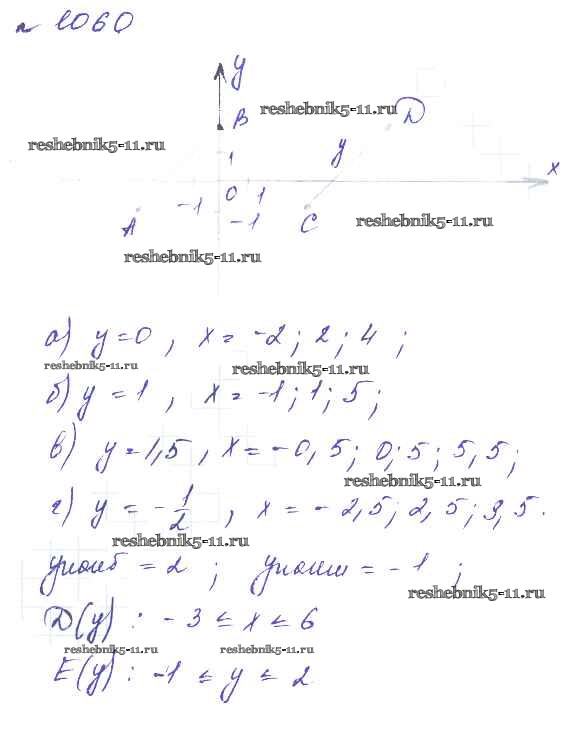 № 1060
y
B
reshebnik5-11.ru
D
reshebnik5-11.ru
1
y
x
-1
0
1
A
-1
C
reshebnik5-11.ru
reshebnik5-11.ru
а) y = 0 , x = -2 ; 2 ; 4 ;
reshebnik5-11.ru
reshebnik5-11.ru
б) y = 1 , x = -1 ; 1 ; 5 ;
в) y = 1,5 , x = -0,5 ; 0,5 ; 5,5 ;
reshebnik5-11.ru
г) y = -1/2 , x = -2,5 ; 2,5 ; 3,5.
reshebnik5-11.ru
yнаиб = 2 ; yнаим = -1 ;
reshebnik5-11.ru
D(y) : -3 ≤ x ≤ 6
reshebnik5-11.ru
reshebnik5-11.ru
E(y) : -1 ≤ y ≤ 2